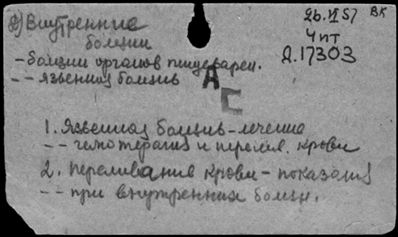 8) Внутренние
болезни
- болезни органов пищеварен.
-- язвенная болезнь
26.VI 57 ВК
4 пт
Д.17303
АС
1. Язвенная болезнь - лечение
-- гемотерапия и перелив. крови
2. Переливания крови - показания
-- при внутренних болезн.